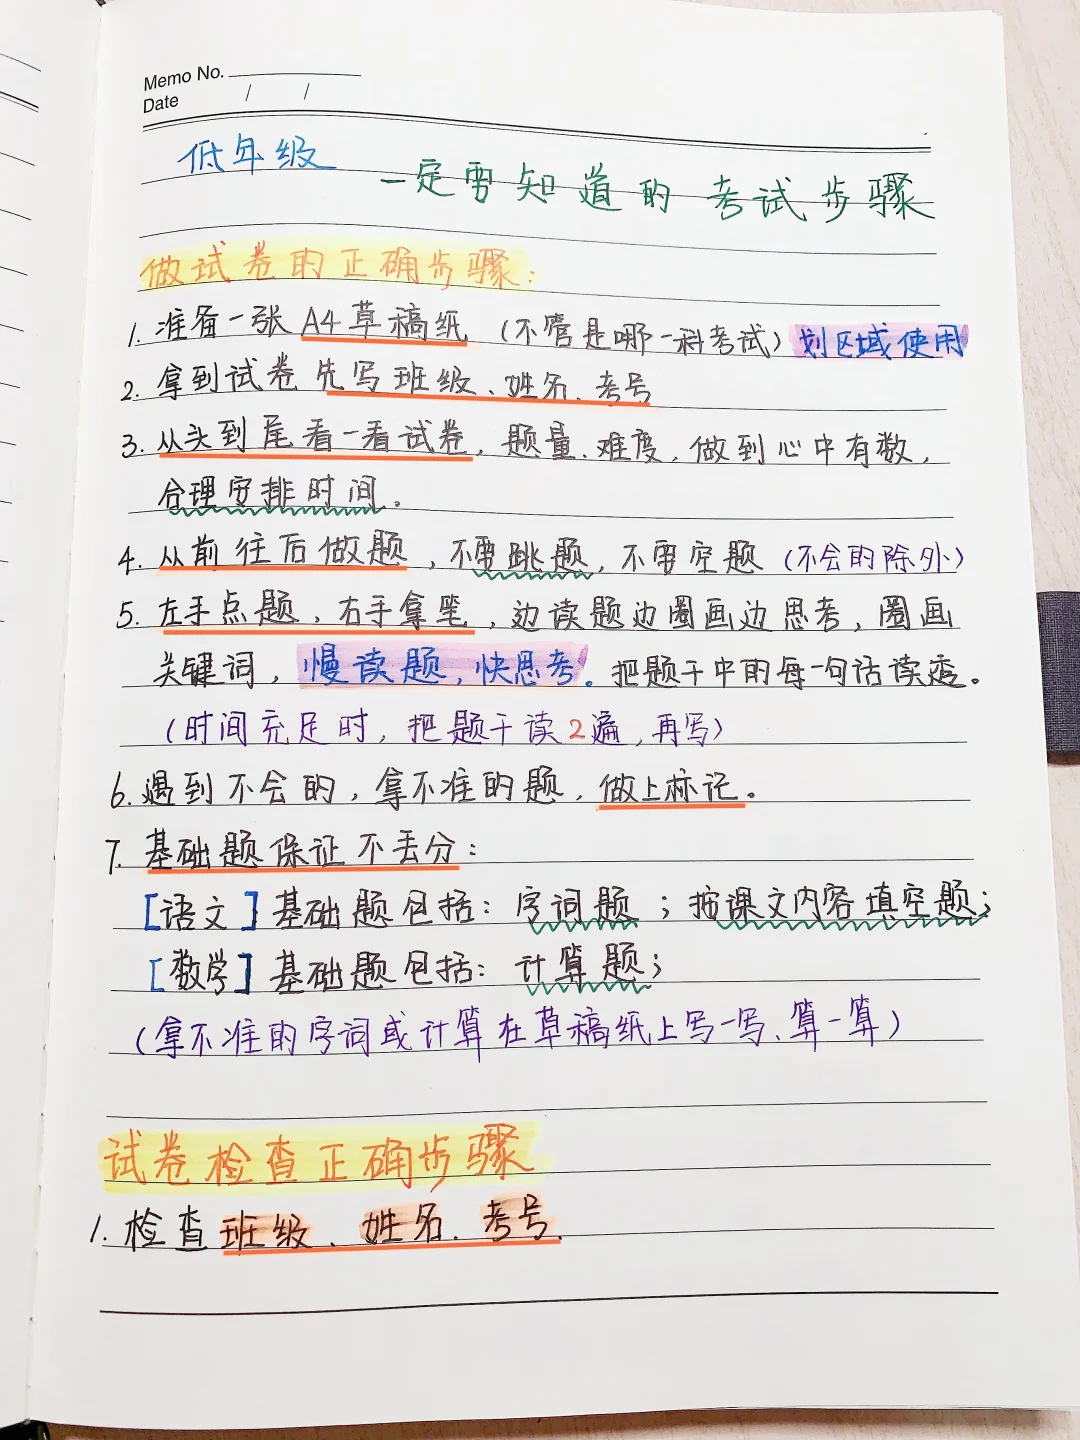 Memo No.
Date / /
低年级
一定要知道的考试步骤
做试卷的正确步骤:
1. 准备一张A4草稿纸 (不管是哪一科考试) 划区域使用
2. 拿到试卷先写班级、姓名、考号
3. 从头到尾看一看试卷, 题量、难度, 做到心中有数,
合理安排时间.
4. 从前往后做题, 不要跳题, 不要空题 (不会的除外)
5. 左手点题, 右手拿笔, 边读题边圈画边思考, 圈画
关键词, 慢读题, 快思考。把题干中的每一句话读透。
(时间充足时, 把题干读2遍, 再写)
6. 遇到不会的, 拿不准的题, 做上标记。
7. 基础题保证不丢分:
[语文] 基础题包括: 字词题; 按课文内容填空题;
[数学] 基础题包括: 计算题;
(拿不准的字词或计算在草稿纸上写一写、算一算)
试卷检查正确步骤
1. 检查班级、姓名、考号.